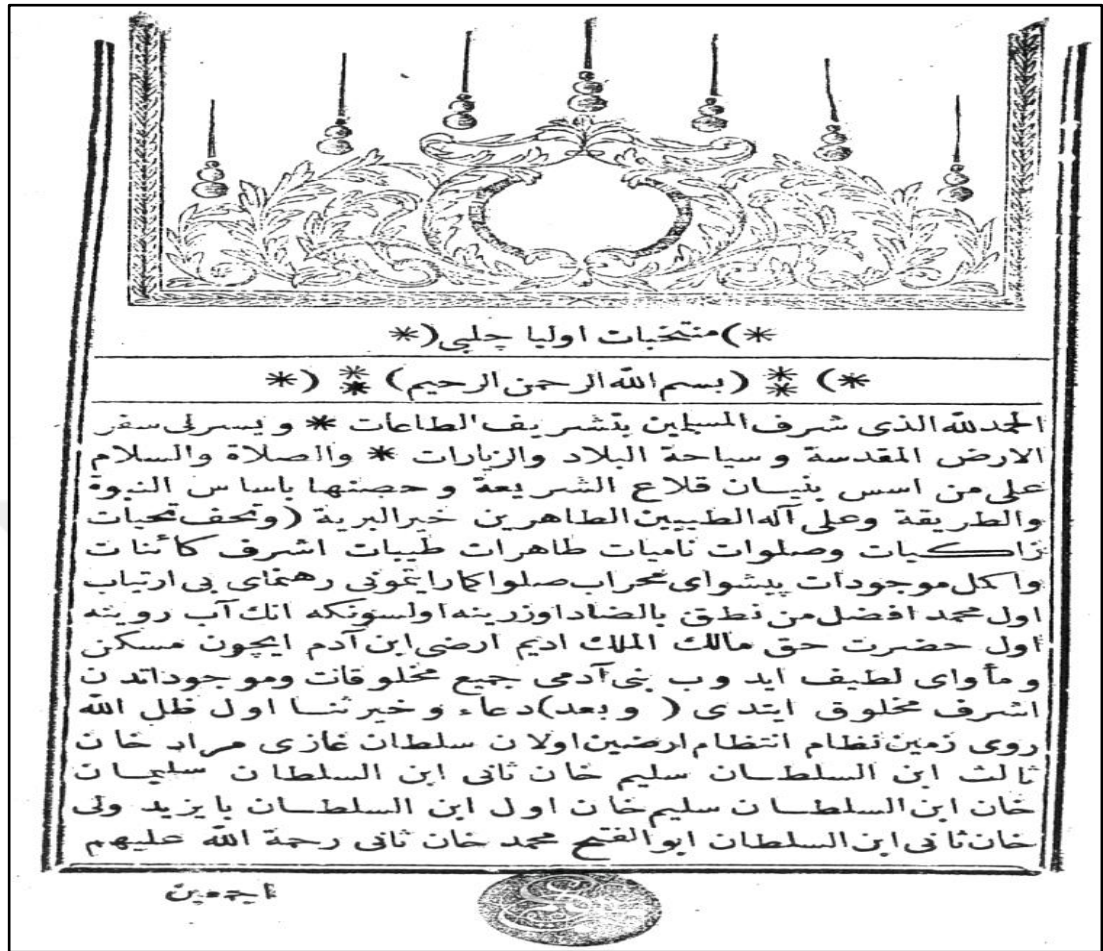 *)منتخبات اوليا چلبی(*
*) ** (بسم الله الرحمن الرحيم) ** (*
الحمدلله الذی شرف المسلمين بتشريف الطاعات * و يسرلی سفر
الارض المقدسة و سياحة البلاد والزيارات * والصلاة والسلام
علی من اسس بنيان قلاع الشريعة و حصنها باساس النبوة
والطريقة وعلی آله الطيبين الطاهرين خيرالبرية (وتحف تحيات
زاكيات وصلوات ناميات طاهرات طيبات اشرف كائنات
واكمل موجودات پيشوای محراب صلوا كمارايتمونی رهنمای بی ارتياب
اول محمد افضل من نطق بالضاد اوزرينه اولسونكه انك آب روينه
اول حضرت حق مالك الملك اديم ارضی ابن آدم ايچون مسكن
و مأوای لطيف ايدوب بنی آدمی جميع مخلوقات وموجوداتدن
اشرف مخلوق ايتدی ( وبعد)دعاء و خيرثنا اول ظل الله
روی زمين نظام انتظام ارضين اولان سلطان غازی مراد خان
ثالث ابن السلطان سليم خان ثانی ابن السلطان سليمان
خان ابن السلطان سليم خان اول ابن السلطان بايزيد ولی
خان ثانی ابن السلطان ابوالفتح محمد خان ثانی رحمة الله عليهم
اجمعين